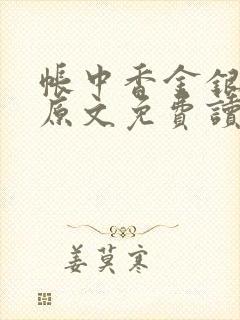 帳中香金銀
原文免費讀
姜莫寒